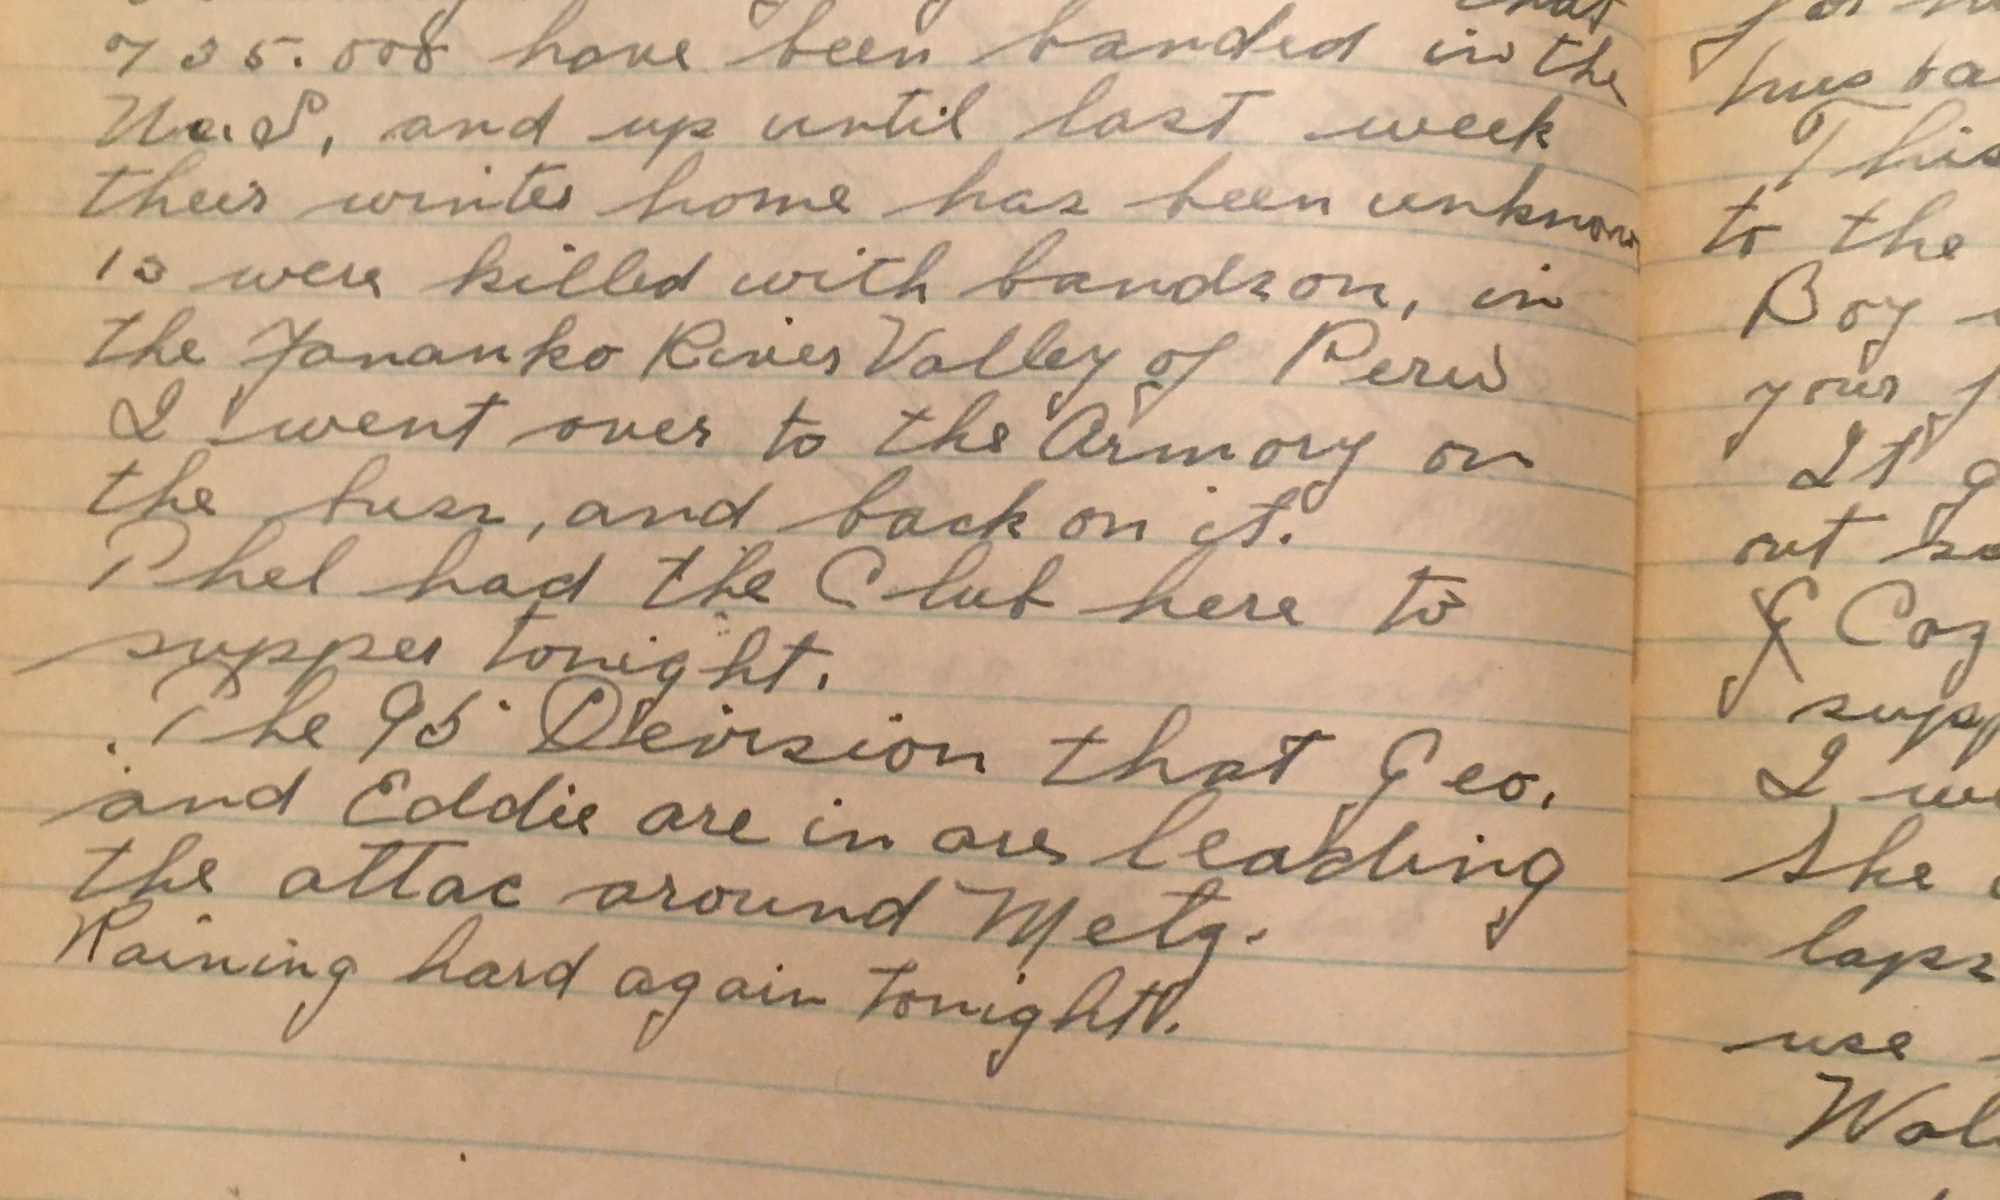 that
735.000 have been banded in the
U.S, and up until last week
their winter home has been unknown
13 were killed with bands on, in
the Yananko River Valley of Peru
I went over to the Armory on
the buss, and back on it.
Phel had the Club here to
supper tonight.
The 95 Devision that Geo.
and Eddie are in are leading
the attac around Metz.
Raining hard again tonight.
This
to the
Boy
your
It
out
Coz
supp
I we
She
laps
use
Wal